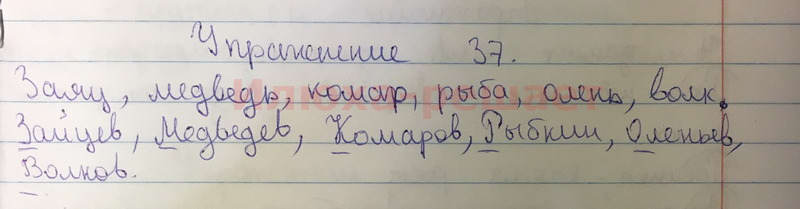 Упражнение 37.
Заяц, медведь, комар, рыба олень, волк.
Зайцев, Медведев, Комаров, Рыбкин, Оленьев,
Волков.